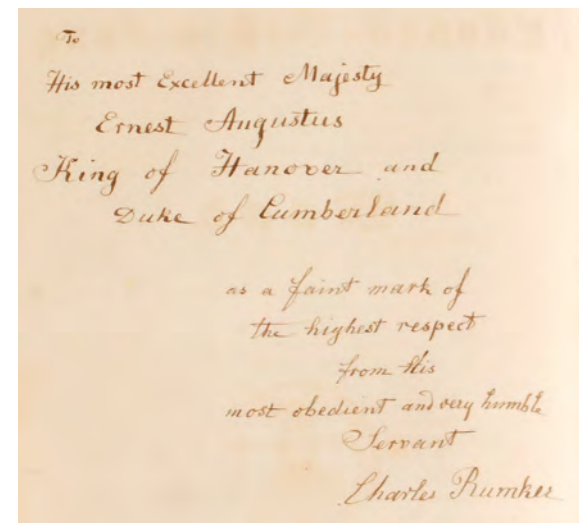 To
His most Excellent Majesty
Ernest Augustus
King of Hanover and
Duke of Cumberland
as a faint mark of
the highest respect
from His
most obedient and very humble
Servant
Charles Rumker